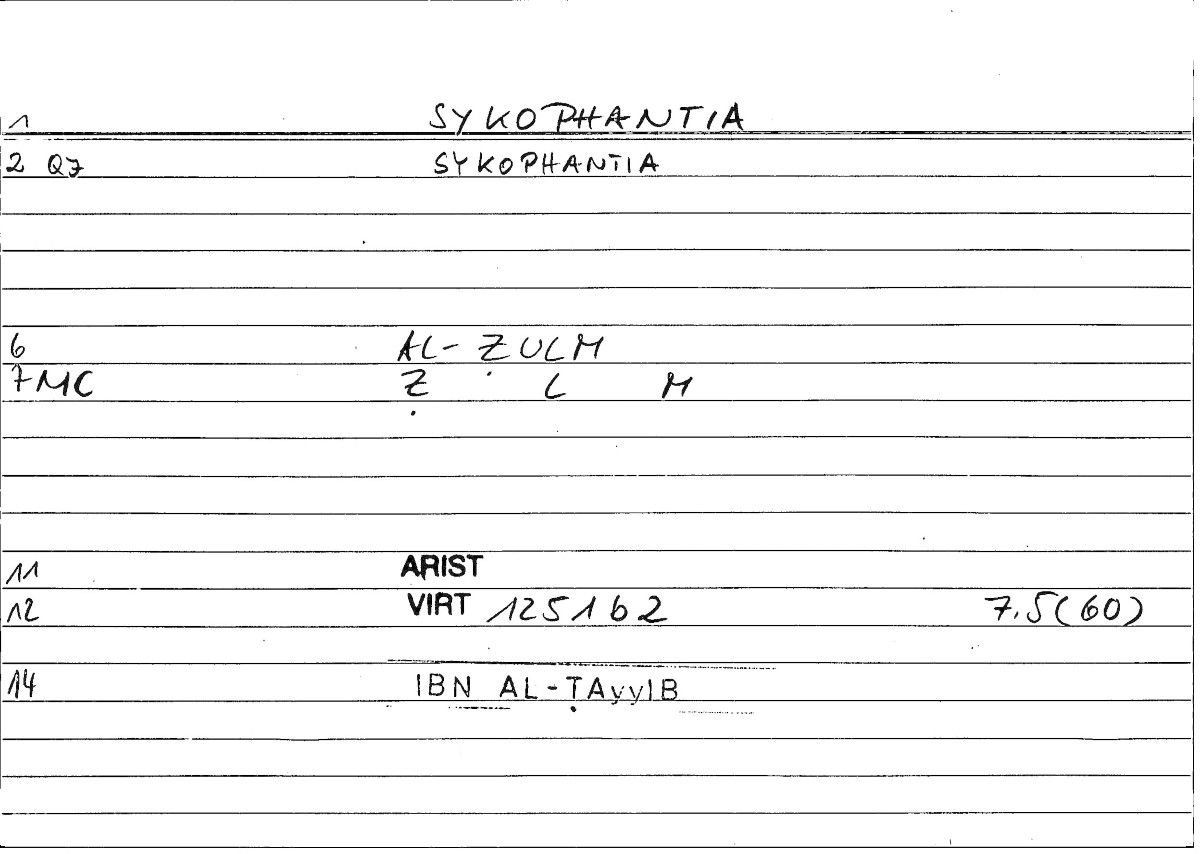 1 SYKOPHANTIA
2 Q7 SYKOPHANTIA
6 AL-ẒULM
7MC Ẓ L M
11 ARIST
12 VIRT 1251b2 7.5(60)
14 IBN AL-ṬAyyIB